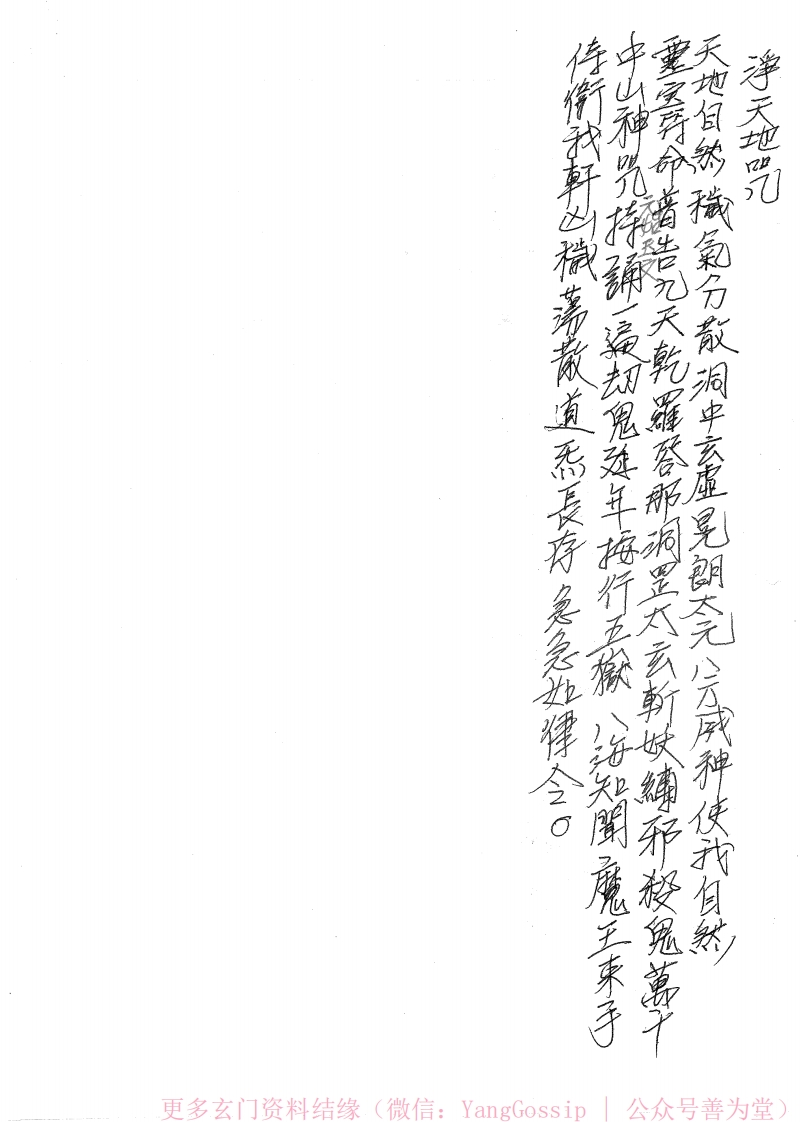 淨天地咒
天地自然穢氣分散洞中玄虛晃朗太元八方威神使我自然
靈宝符命普告九天乾羅答那洞罡太玄斬妖縛邪殺鬼萬千
元始玉文
中山神咒持誦一遍却鬼延年按行五嶽八海知聞魔王束手
侍衛我軒凶穢蕩散道炁長存急急如律令。
更多玄门资料结缘（微信：YangGossip | 公众号善为堂）